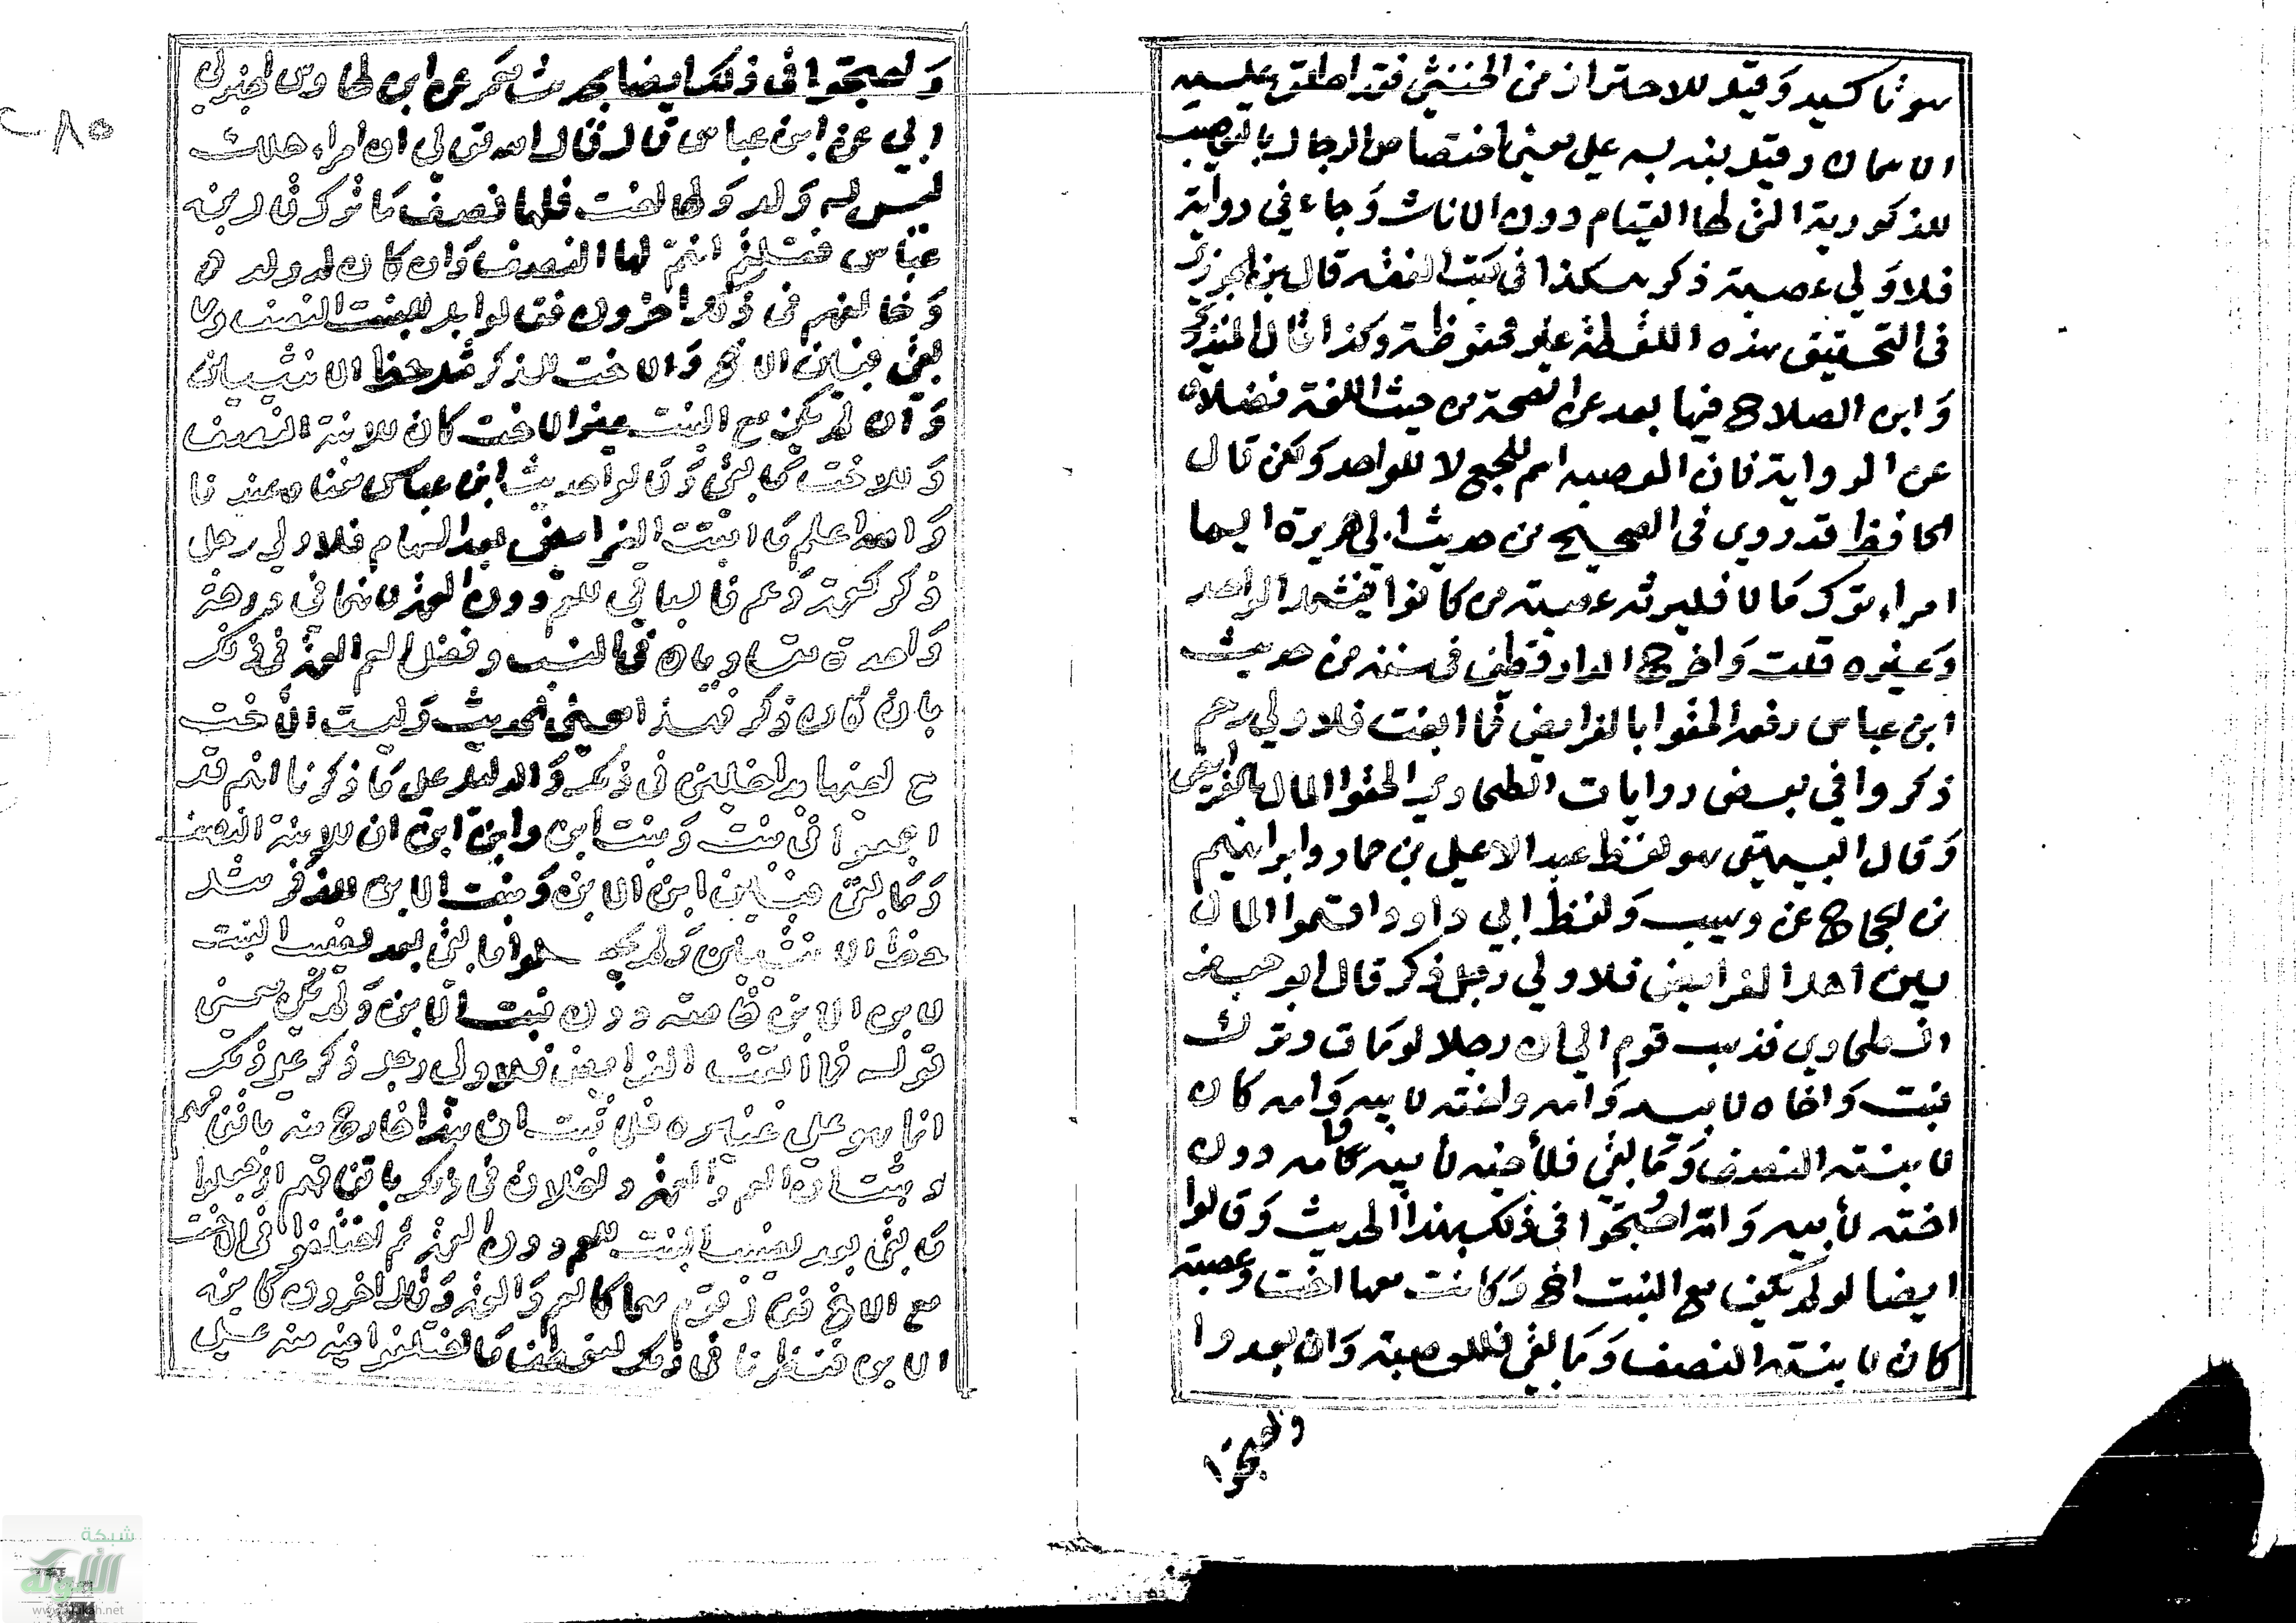 هو تاكيد وقيل للاحتراز من الخنثى فقد اطلق عليه
الاسمان وقيل بنه به على معنى اختصاص الرجال بالتعصيب
للذكورية التى لها القيام دون الاناث وجاء فى رواية
فلاولي عصبة ذكر هكذا فى كتب الفقه قال بن الجوزي
فى التحقيق هذه اللفظة غير محفوظة وكذا قال المنذري
وابن الصلاح فيها بعد عن الصحة من حيث اللغة فضلا
عن الرواية فان العصبه اسم للجمع لا للواحد ولكن قال
الحافظ قد روى فى الصحيح من حديث ابي هريرة ايما
امراء ترك مالا فليرثه عصبته من كانوا فيشمل الواحد
وغيره قلت واخرج الدارقطنى فى سننه من حديث
ابن عباس رفعه الحقوا بالفرايض فما ابقت فلاولي رحم
ذكر وا في بعض روايات الطحاوي الحقوا المال بالفرايض
وقال البيهقى هو لفظ عبد الاعلى بن حماد وابراهيم
بن الحجاج عن وهيب ولفظ ابي داود اقسموا المال
بين اهل الفرايض فلاولي رجل ذكر قال ابو جعفر
الطحاوي فذهب قوم الى ان رجلا لو مات وترك
بنت واخاه لابيه وامه واخته لابيه وامه كان
لابنته النصف وما بقي فلأخيه لأبيه وامه دون
اخته لأبيه وامه واحتجوا فى ذلك بهذا الحديث وقالوا
ايضا لو لم يكن مع البنت اخ وكانت معها اخت وعصبة
كان لابنته النصف وما بقي فللعصبة وان بعدوا
واحتجوا
٢٨٥
واحتجوا فى ذلك ايضا بحديث معمر عن ابن طاوس اخبرني
ابي عن ابن عباس قال قال الله تعالي ان امراء هلك
ليس له ولد وله اخت فلها نصف ما ترك قال ابن
عباس فقلتم انتم لها النصف وان كان له ولد
وخالفهم فى ذلك اخرون فقالوا بل للبنت النصف وما
بقي فبين الاخ والاخت للذكر مثل حظ الانثيين
وان لم يكن مع البنت غير الاخت كان للابنة النصف
وللاخت ما بقي وقالوا حديث ابن عباس معناه عندنا
والله اعلم ما ابقت الفرايض بعد السهام فلاولي رجل
ذكر كعمة وعم فالباقي للعم دون العمة لانهما في درجة
واحدة متساويان فى النسب وفضل العم العمة فى ذلك
بان كان ذكر فهذا معنى الحديث وليست الأخت
مع اخيها بداخلين فى ذلك والدليل على ما ذكرنا انهم قد
اجمعوا فى بنت وبنت ابن وابن ابن ان للابنة النصف
وما بقي فبين ابن الابن وبنت الابن للذكر مثل
حظ الانثيين ولم يجعلوا ما بقي بعد نصيب البنت
لابن الابن خاصة دون بنت الابن ولم يكن معنى
قوله فما ابقت الفرايض فلاولى رجل ذكر على ذلك
انما هو على غيره فلما ثبت ان هذا خارج منه باتفاقهم
وثبت ان العم والعمة داخلان فى ذلك باتفاقهم اذ جعلوا
ما بقي بعد نصيب البنت للعم دون العمة ثم اختلفوا فى الاخت
مع الاخ فقال قوم هما كالعم والعمة وقال اخرون كابن
الابن فنظرنا فى ذلك لنعطف ما اختلفوا فيه منه على
شبكة
الألوكة
www.alukah.net